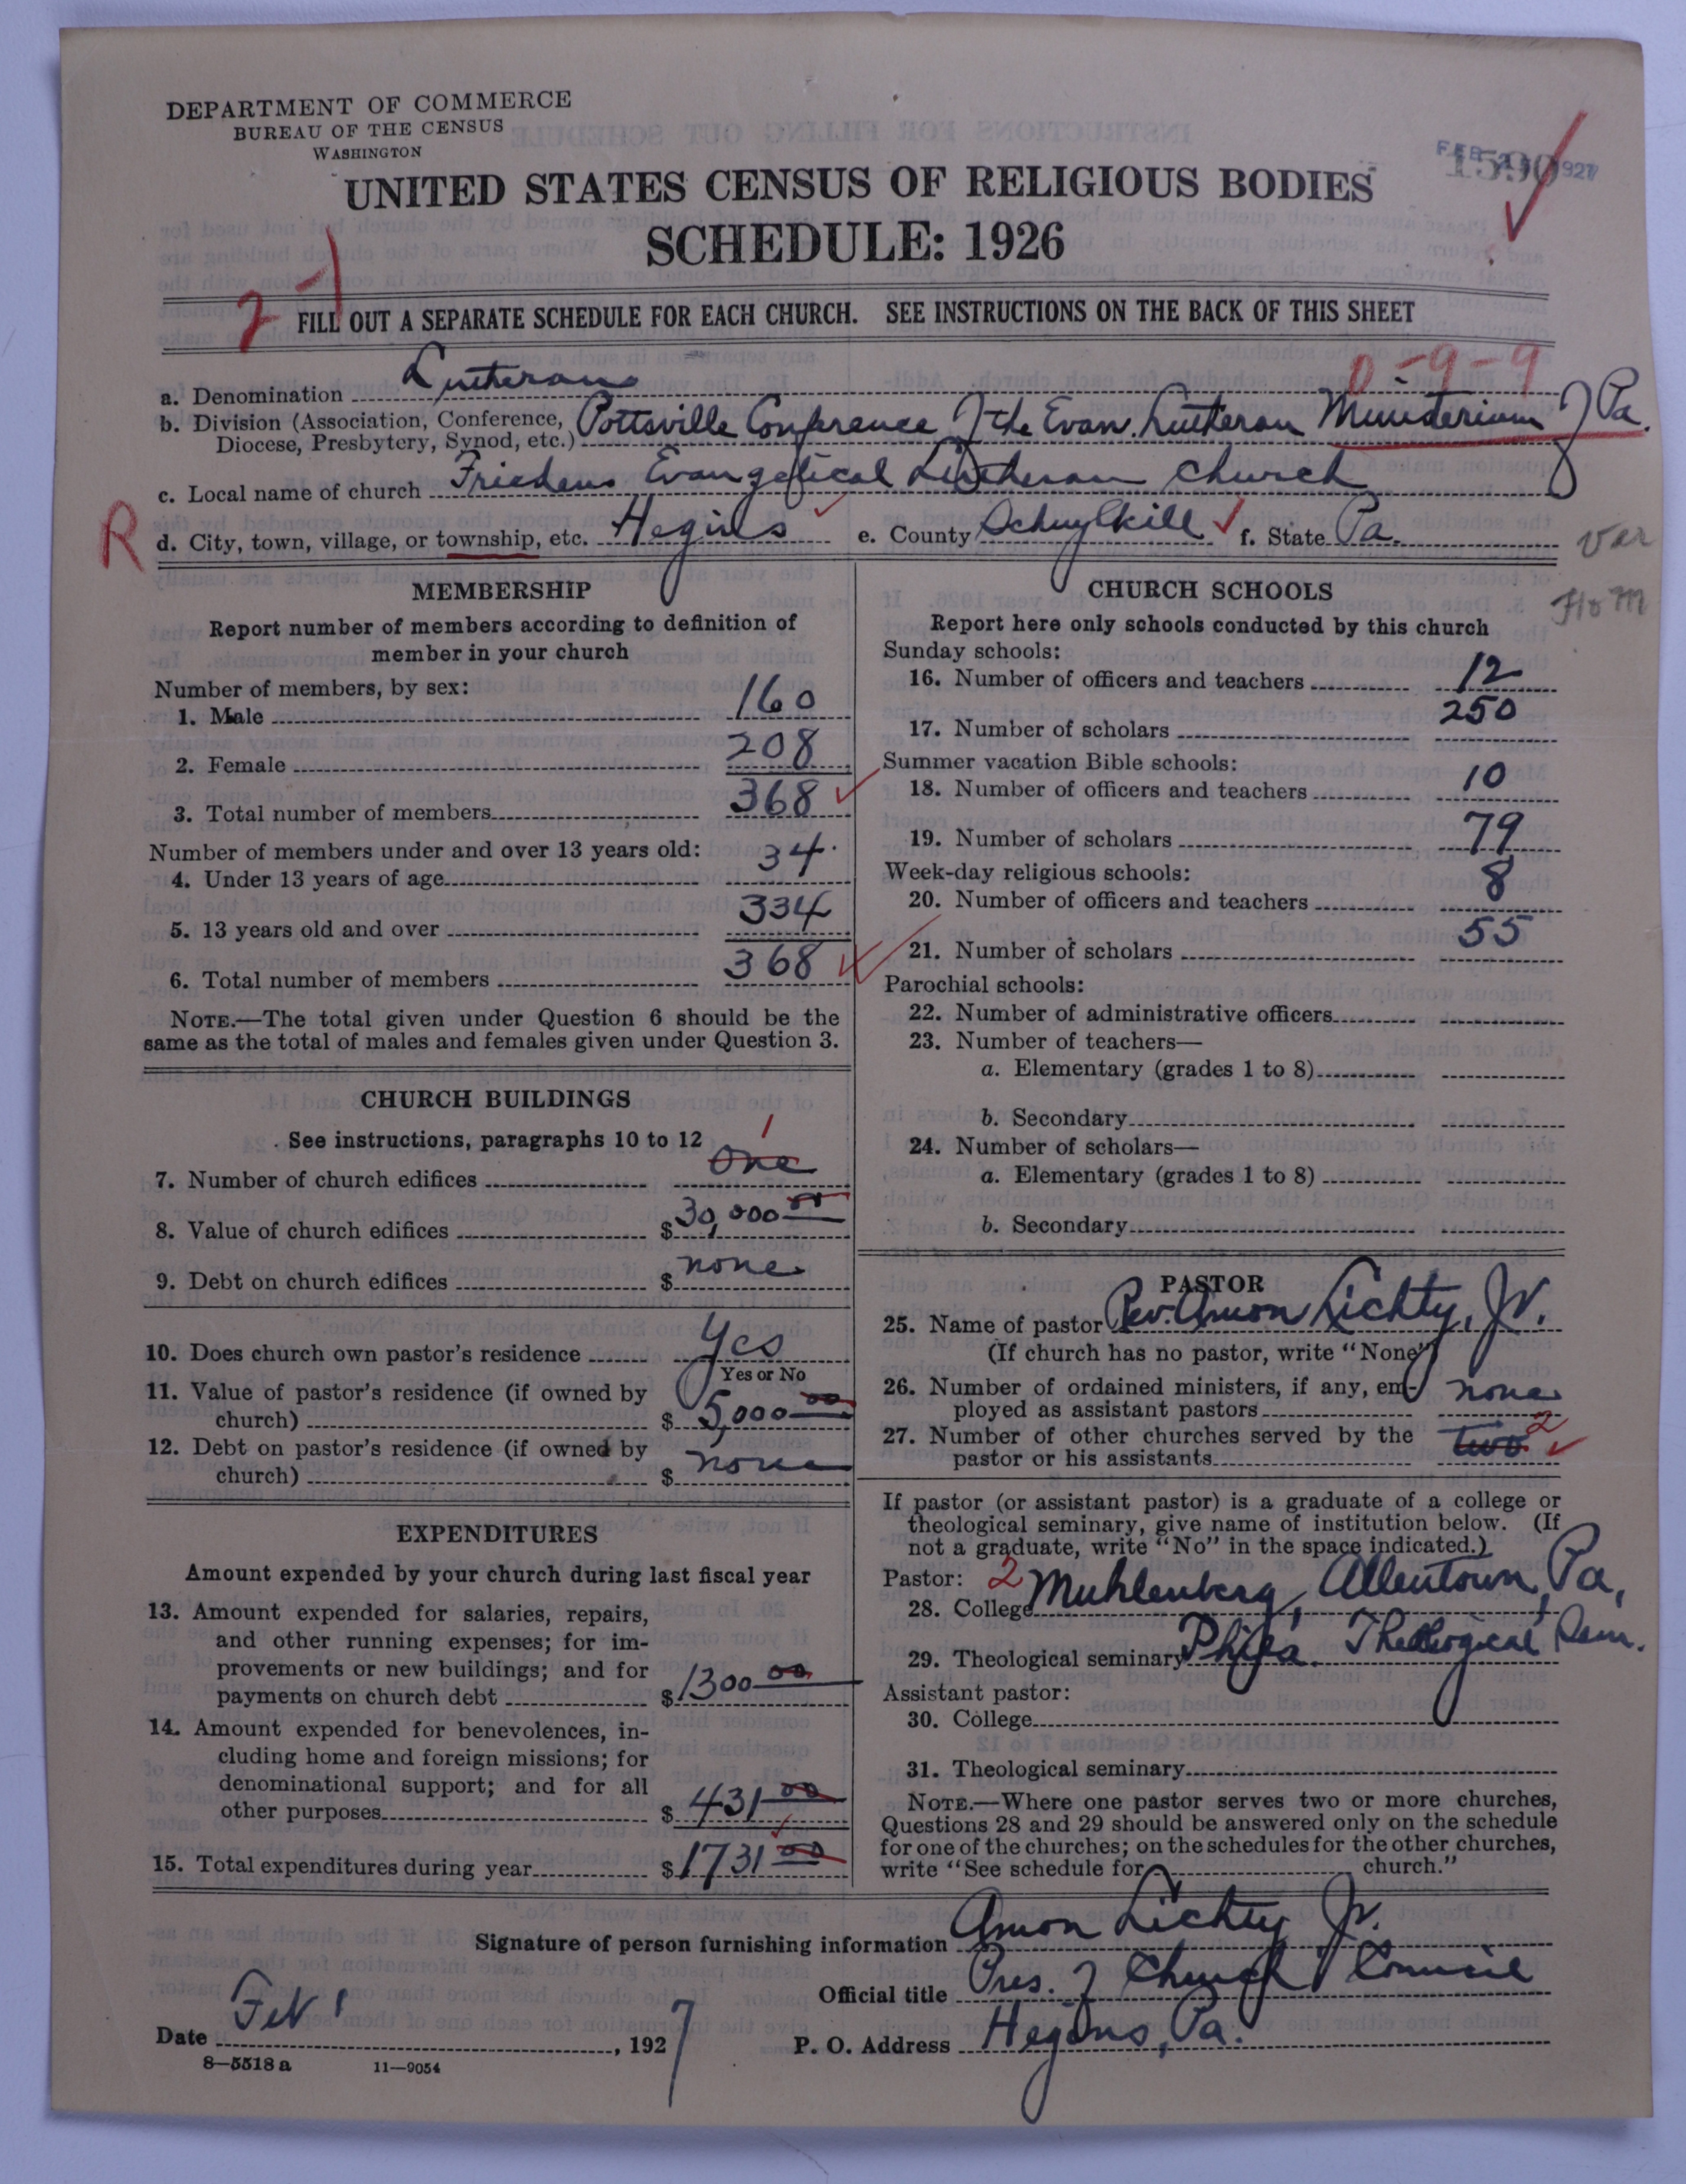 DEPARTMENT OF COMMERCE
BUREAU OF THE CENSUS
WASHINGTON
UNITED STATES CENSUS OF RELIGIOUS BODIES
SCHEDULE: 1926
2-1
FILL OUT A SEPARATE SCHEDULE FOR EACH CHURCH. SEE INSTRUCTIONS ON THE BACK OF THIS SHEET
0-9-9
a. Denomination Lutheran
b. Division (Association, Conference, Diocese, Presbytery, Synod, etc.) Pottsville Conference of the Evan. Lutheran Ministerium of Pa.
c. Local name of church Friedens Evangelical Lutheran Church
R d. City, town, village, or township, etc. Hegins e. County Schuylkill f. State Pa.
Ver
MEMBERSHIP
Report number of members according to definition of
member in your church
Number of members, by sex:
1. Male 160
2. Female 208
3. Total number of members 368
Number of members under and over 13 years old:
4. Under 13 years of age 34
5. 13 years old and over 334
6. Total number of members 368
NOTE.—The total given under Question 6 should be the
same as the total of males and females given under Question 3.
CHURCH BUILDINGS
See instructions, paragraphs 10 to 12
1
7. Number of church edifices One
8. Value of church edifices $30,000 00
9. Debt on church edifices $ none
10. Does church own pastor's residence Yes
Yes or No
11. Value of pastor's residence (if owned by
church) $ 5,000 00
12. Debt on pastor's residence (if owned by
church) $ none
EXPENDITURES
Amount expended by your church during last fiscal year
13. Amount expended for salaries, repairs,
and other running expenses; for im-
provements or new buildings; and for
payments on church debt $1300 00
14. Amount expended for benevolences, in-
cluding home and foreign missions; for
denominational support; and for all
other purposes $ 431 00
15. Total expenditures during year $1731 00
CHURCH SCHOOLS
Report here only schools conducted by this church
Sunday schools:
16. Number of officers and teachers 12
17. Number of scholars 250
Summer vacation Bible schools:
18. Number of officers and teachers 10
19. Number of scholars 79
Week-day religious schools:
20. Number of officers and teachers 8
21. Number of scholars 55
Parochial schools:
22. Number of administrative officers
23. Number of teachers—
a. Elementary (grades 1 to 8)
b. Secondary
24. Number of scholars—
a. Elementary (grades 1 to 8)
b. Secondary
PASTOR
25. Name of pastor Rev. Amon Lichty, Jr.
(If church has no pastor, write "None")
26. Number of ordained ministers, if any, em-
ployed as assistant pastors none
27. Number of other churches served by the
pastor or his assistants two 2
If pastor (or assistant pastor) is a graduate of a college or
theological seminary, give name of institution below. (If
not a graduate, write "No" in the space indicated.)
Pastor: 2
28. College Muhlenberg, Allentown, Pa.
29. Theological seminary Phila. Theological Sem.
Assistant pastor:
30. College
31. Theological seminary
NOTE.—Where one pastor serves two or more churches,
Questions 28 and 29 should be answered only on the schedule
for one of the churches; on the schedules for the other churches,
write "See schedule for church."
Signature of person furnishing information Amon Lichty Jr.
Official title Pres. of Church Council
Date Feb 1, 1927 P. O. Address Hegins, Pa.
8—5518 a 11—9054